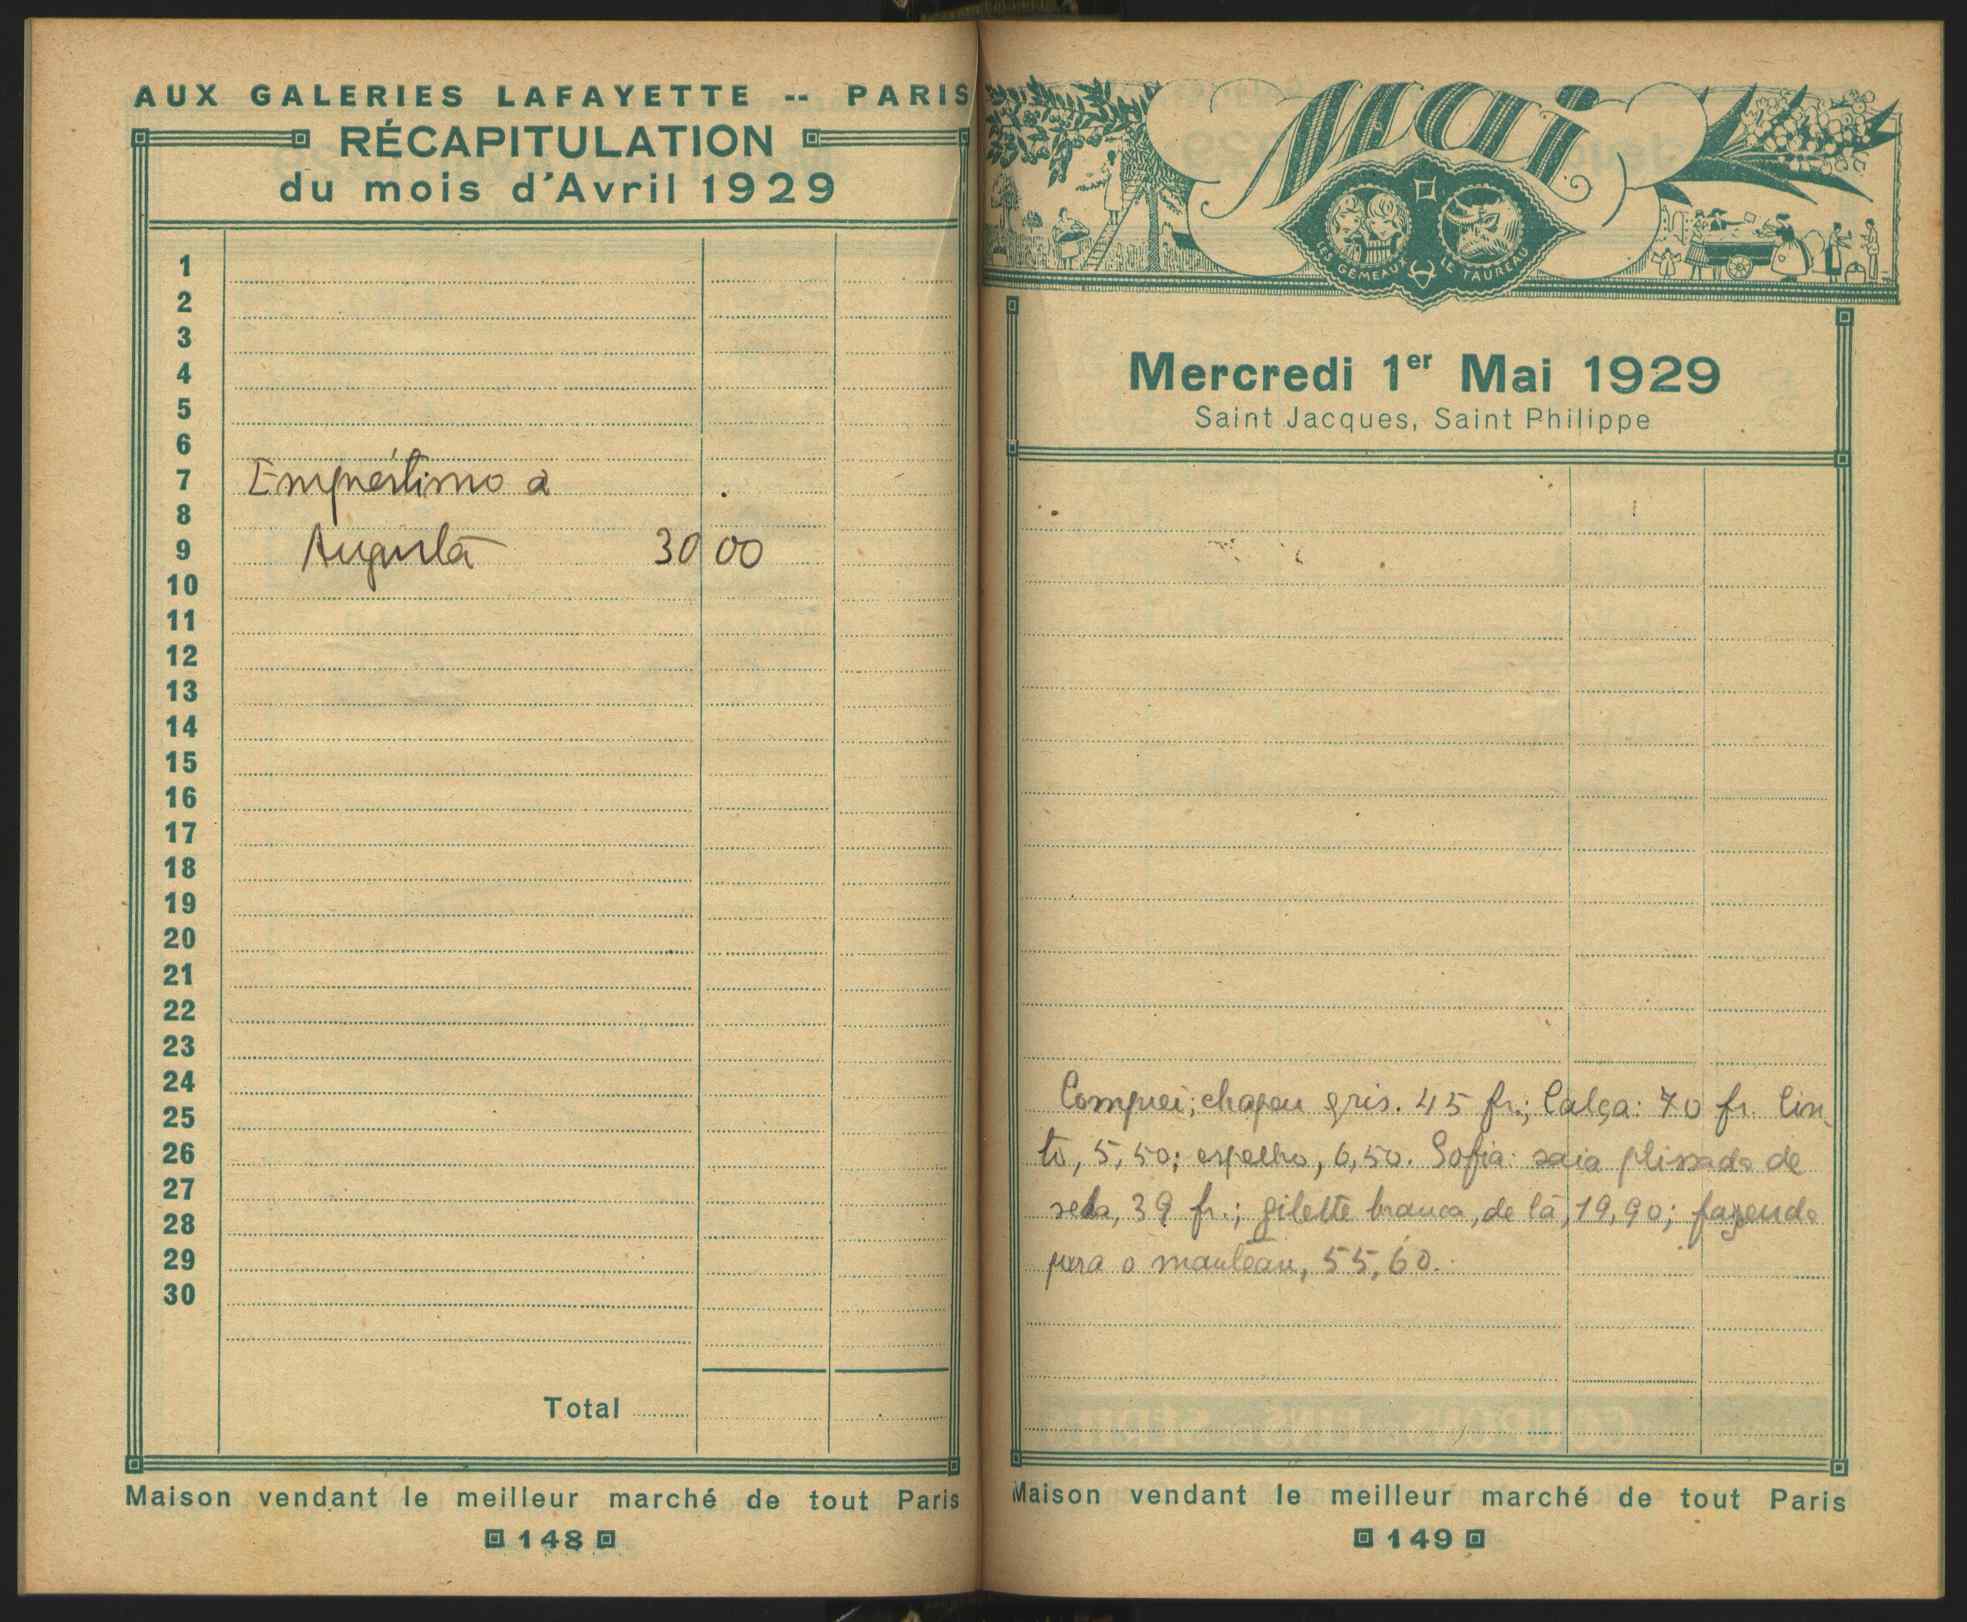 AUX GALERIES LAFAYETTE -- PARIS
RÉCAPITULATION
du mois d'Avril 1929
1
2
3
4
5
6
7 Empréstimo a
8
9 Augusta 30 00
10
11
12
13
14
15
16
17
18
19
20
21
22
23
24
25
26
27
28
29
30
Total
Maison vendant le meilleur marché de tout Paris
148
Mai
LES GÉMEAUX LE TAUREAU
Mercredi 1er Mai 1929
Saint Jacques, Saint Philippe
Comprei; chapeu gris. 45 fr.; Calça: 70 fr. Cin
to, 5,50; espelho, 6,50. Sofia: saia plissada de
seda, 39 fr.; gilette branca, de lã, 19,90; fazenda
para o manteau, 55,60.
Maison vendant le meilleur marché de tout Paris
149